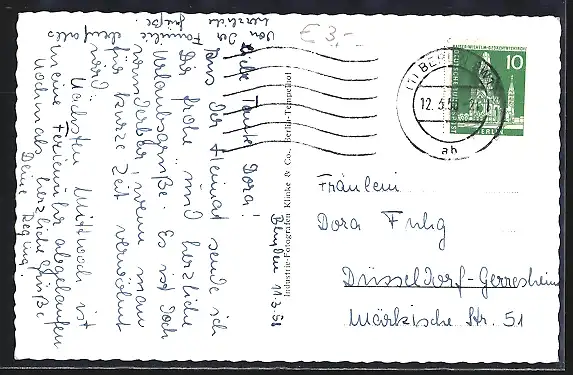 Von der Familie ebenfalls
herzliche Grüße.
€ 3,-
Berlin 11.3.58
Liebe Tante Dora!
Aus der Heimat sende ich
Dir frohe und herzliche
Urlaubsgrüße. Es ist doch
wunderbar, wenn man
für kurze Zeit verwöhnt
wird.
Nächsten Mittwoch ist
meine Ferienuhr abgelaufen
Nochmals herzliche Grüße
Deine Regina.
Industrie-Fotografen Klinke & Co., Berlin-Tempelhof
(1) BERLIN
12.3.58
ah
KAISER-WILHELM-GEDÄCHTNISKIRCHE
10
DEUTSCHE BUNDESPOST
BERLIN
Fräulein
Dora Fuhg
Düsseldorf-Gerresheim
Märkische Str. 51